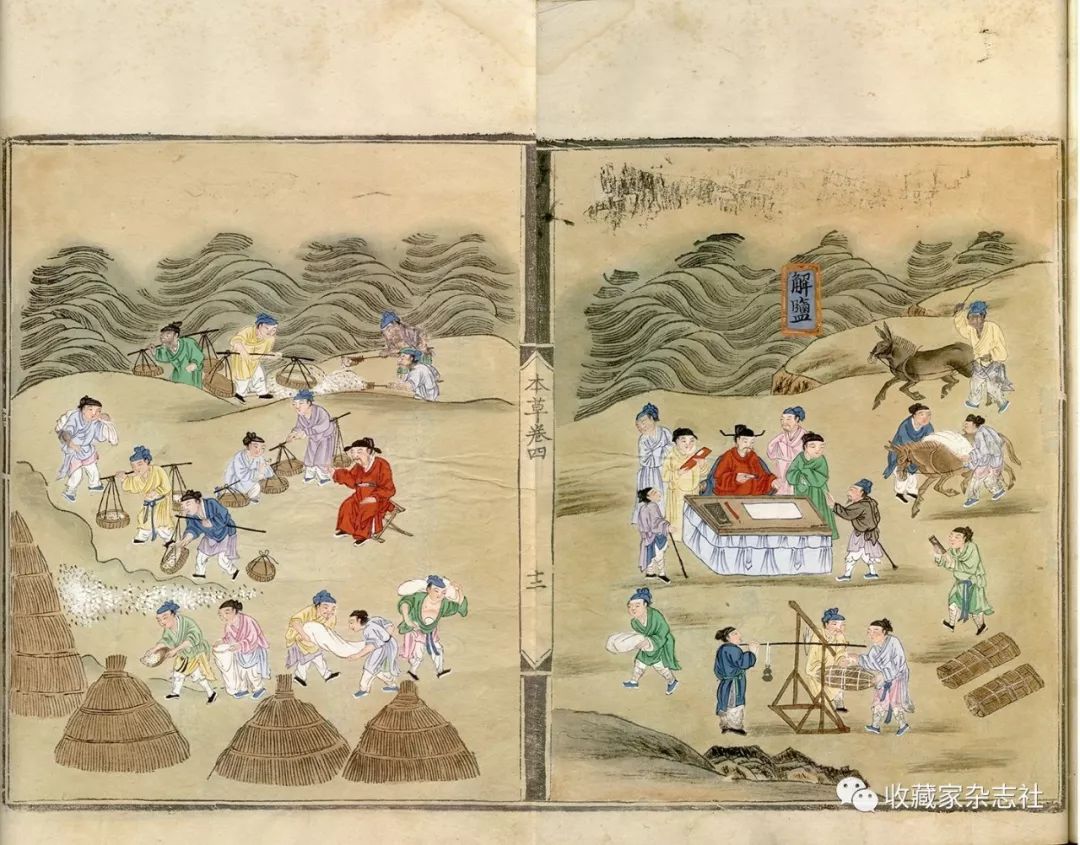 解鹽
本草卷四
十二
收藏家杂志社